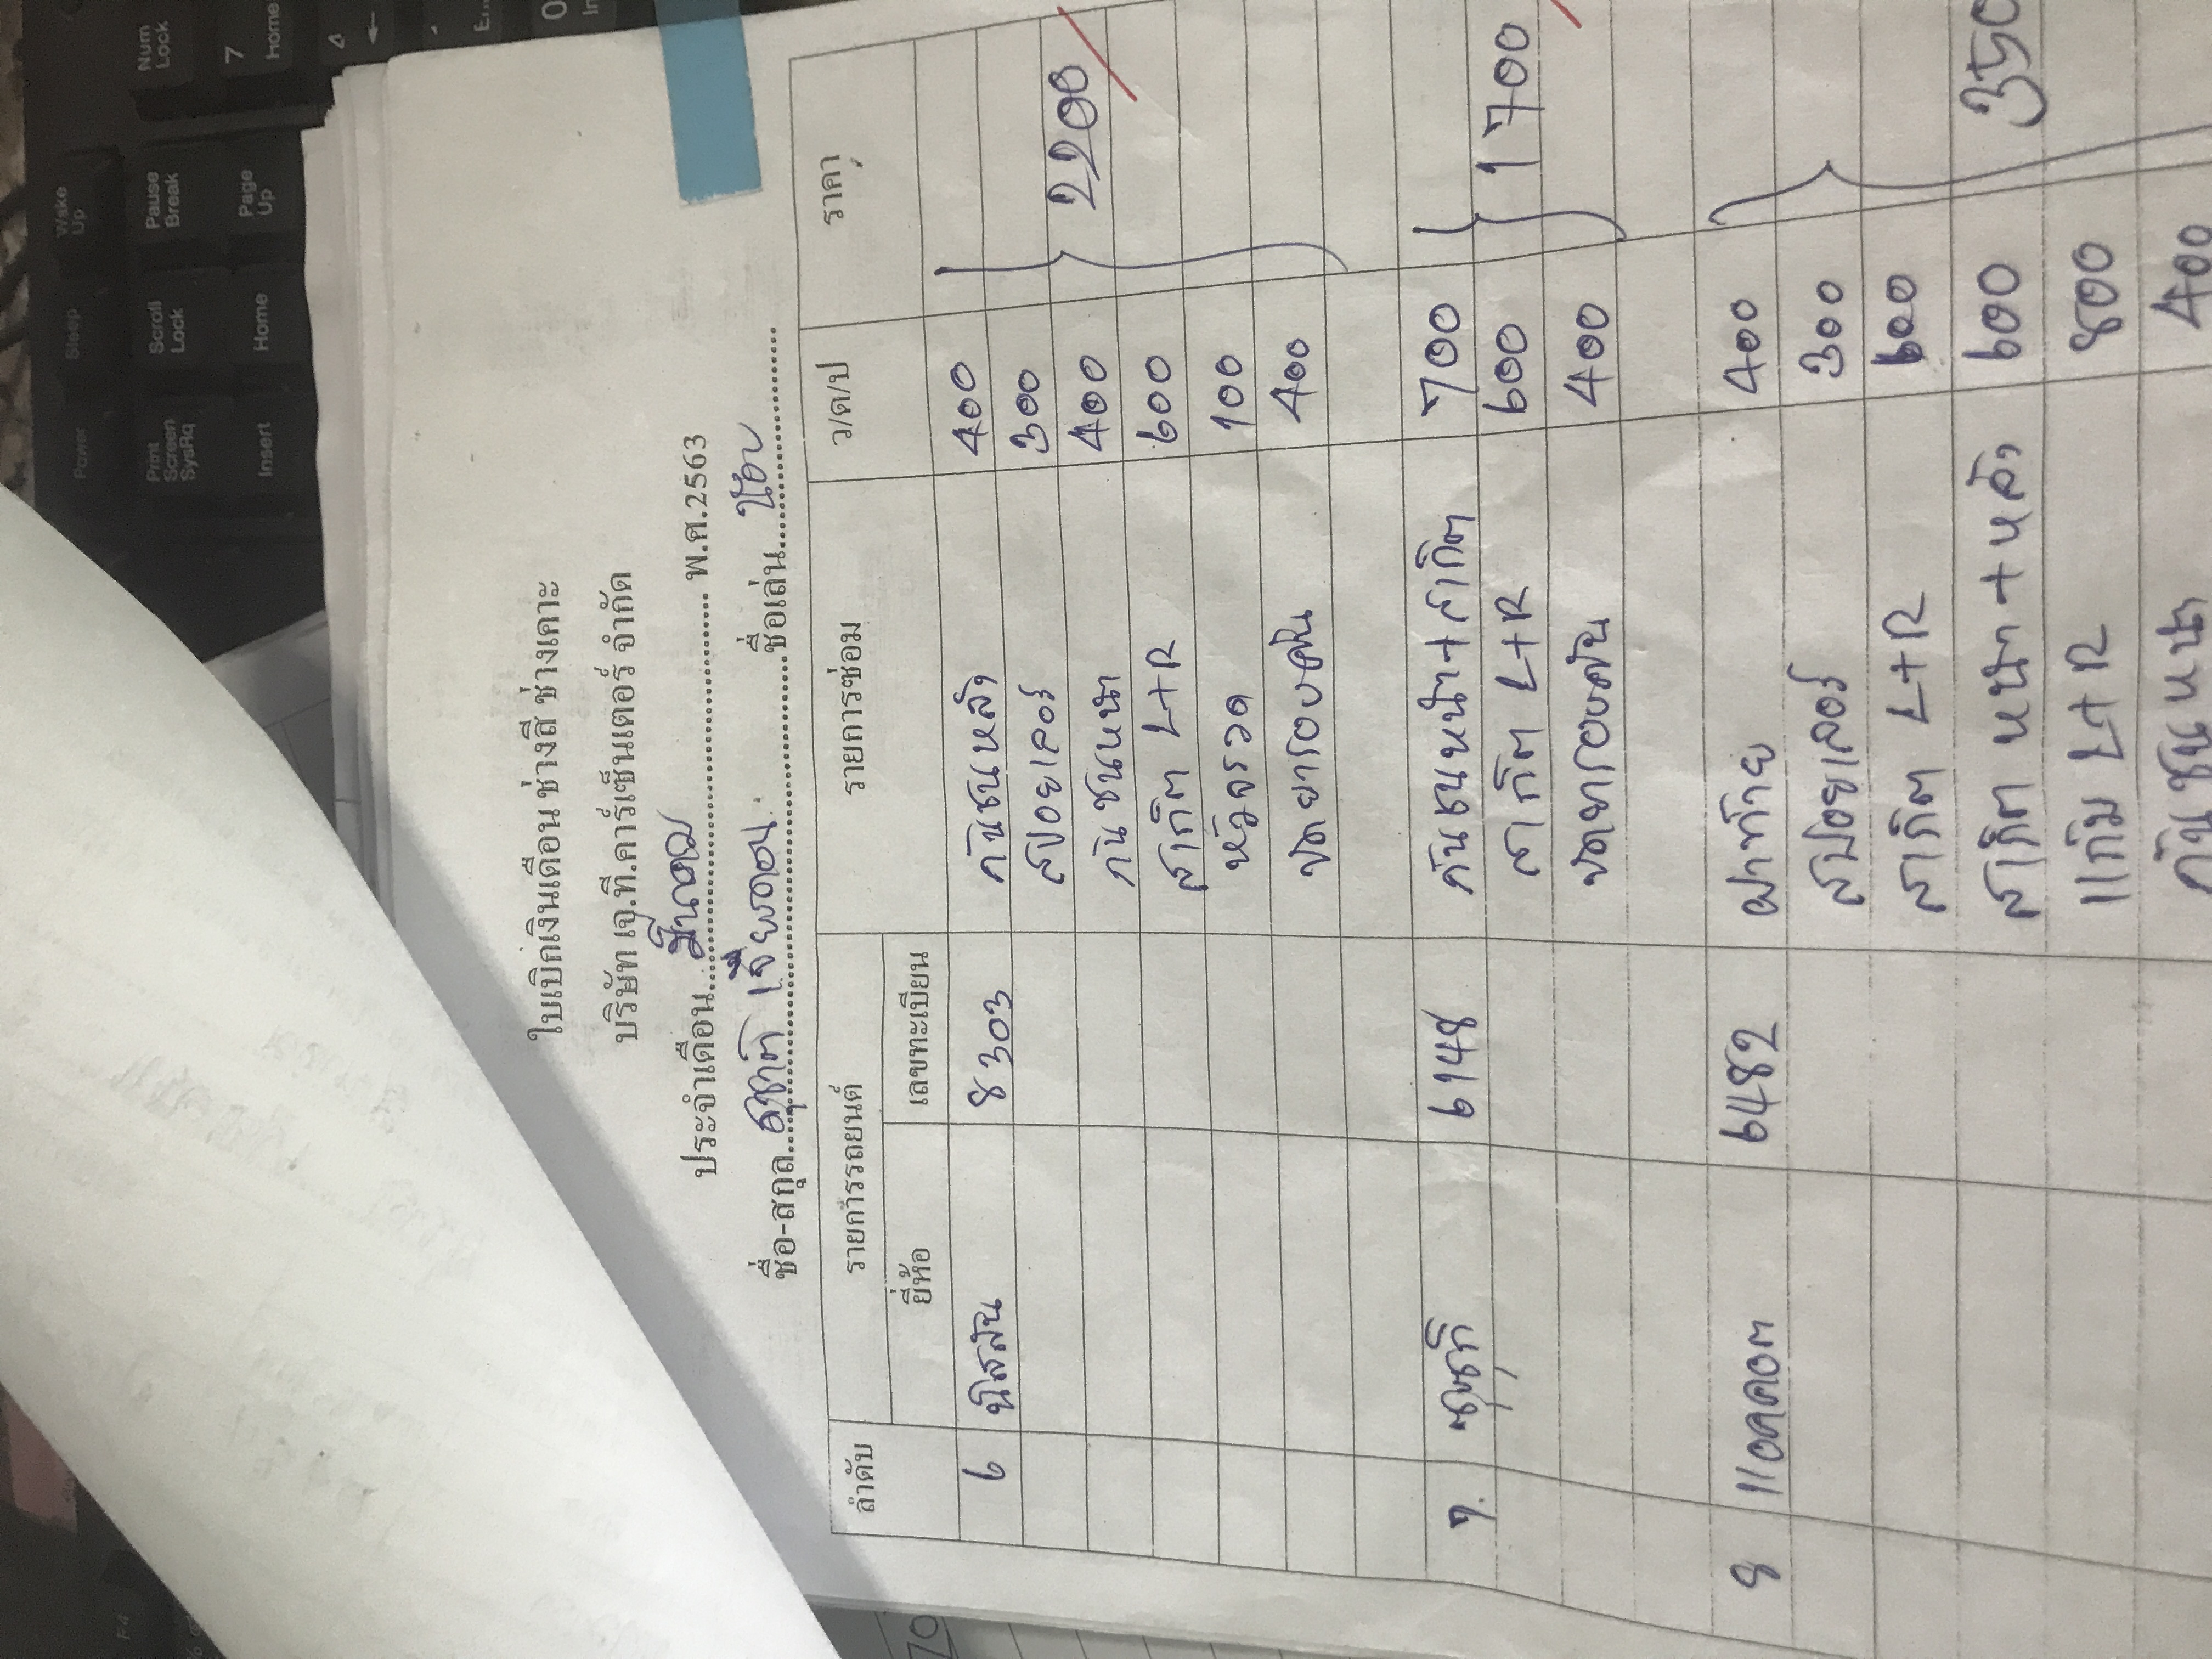 ใบเบิกเงินเดือน ช่างสี ช่างเคาะ
บริษัท เจ.ที.คาร์เซ็นเตอร์ จำกัด
ประจำเดือน...มีนาคม... พ.ศ.2563
ชื่อ-สกุล...สุชาติ...ชื่อเล่น...
ลำดับ รายการรถยนต์ รายการซ่อม ว/ด/ป ราคา
ยี่ห้อ เลขทะเบียน
6 นิสสัน 8303 กันชนหลัง 400
สปอยเลอร์ 300
กันชนหน้า 400 2200
สเกิต L+R 600
หัวจรวด 100
ขัดยารอบคัน 400
7. ซูซูกิ 6148 กันชนหน้า+สเกิต 700
สเกิต L+R 600 1700
ขัดยารอบคัน 400
8 แอคคอต 6482 ฝาท้าย 400
สปอยเลอร์ 300
สเกิต L+R 600
สเกิต หน้า+หลัง 600 350
แก้ม L+R 800
กันชนหน้า 400
Num Lock
7 Home
4
Wake Up
Pause Break
Page Up
Sleep
Scroll Lock
Home
Power
Print Screen SysRq
Insert
F4